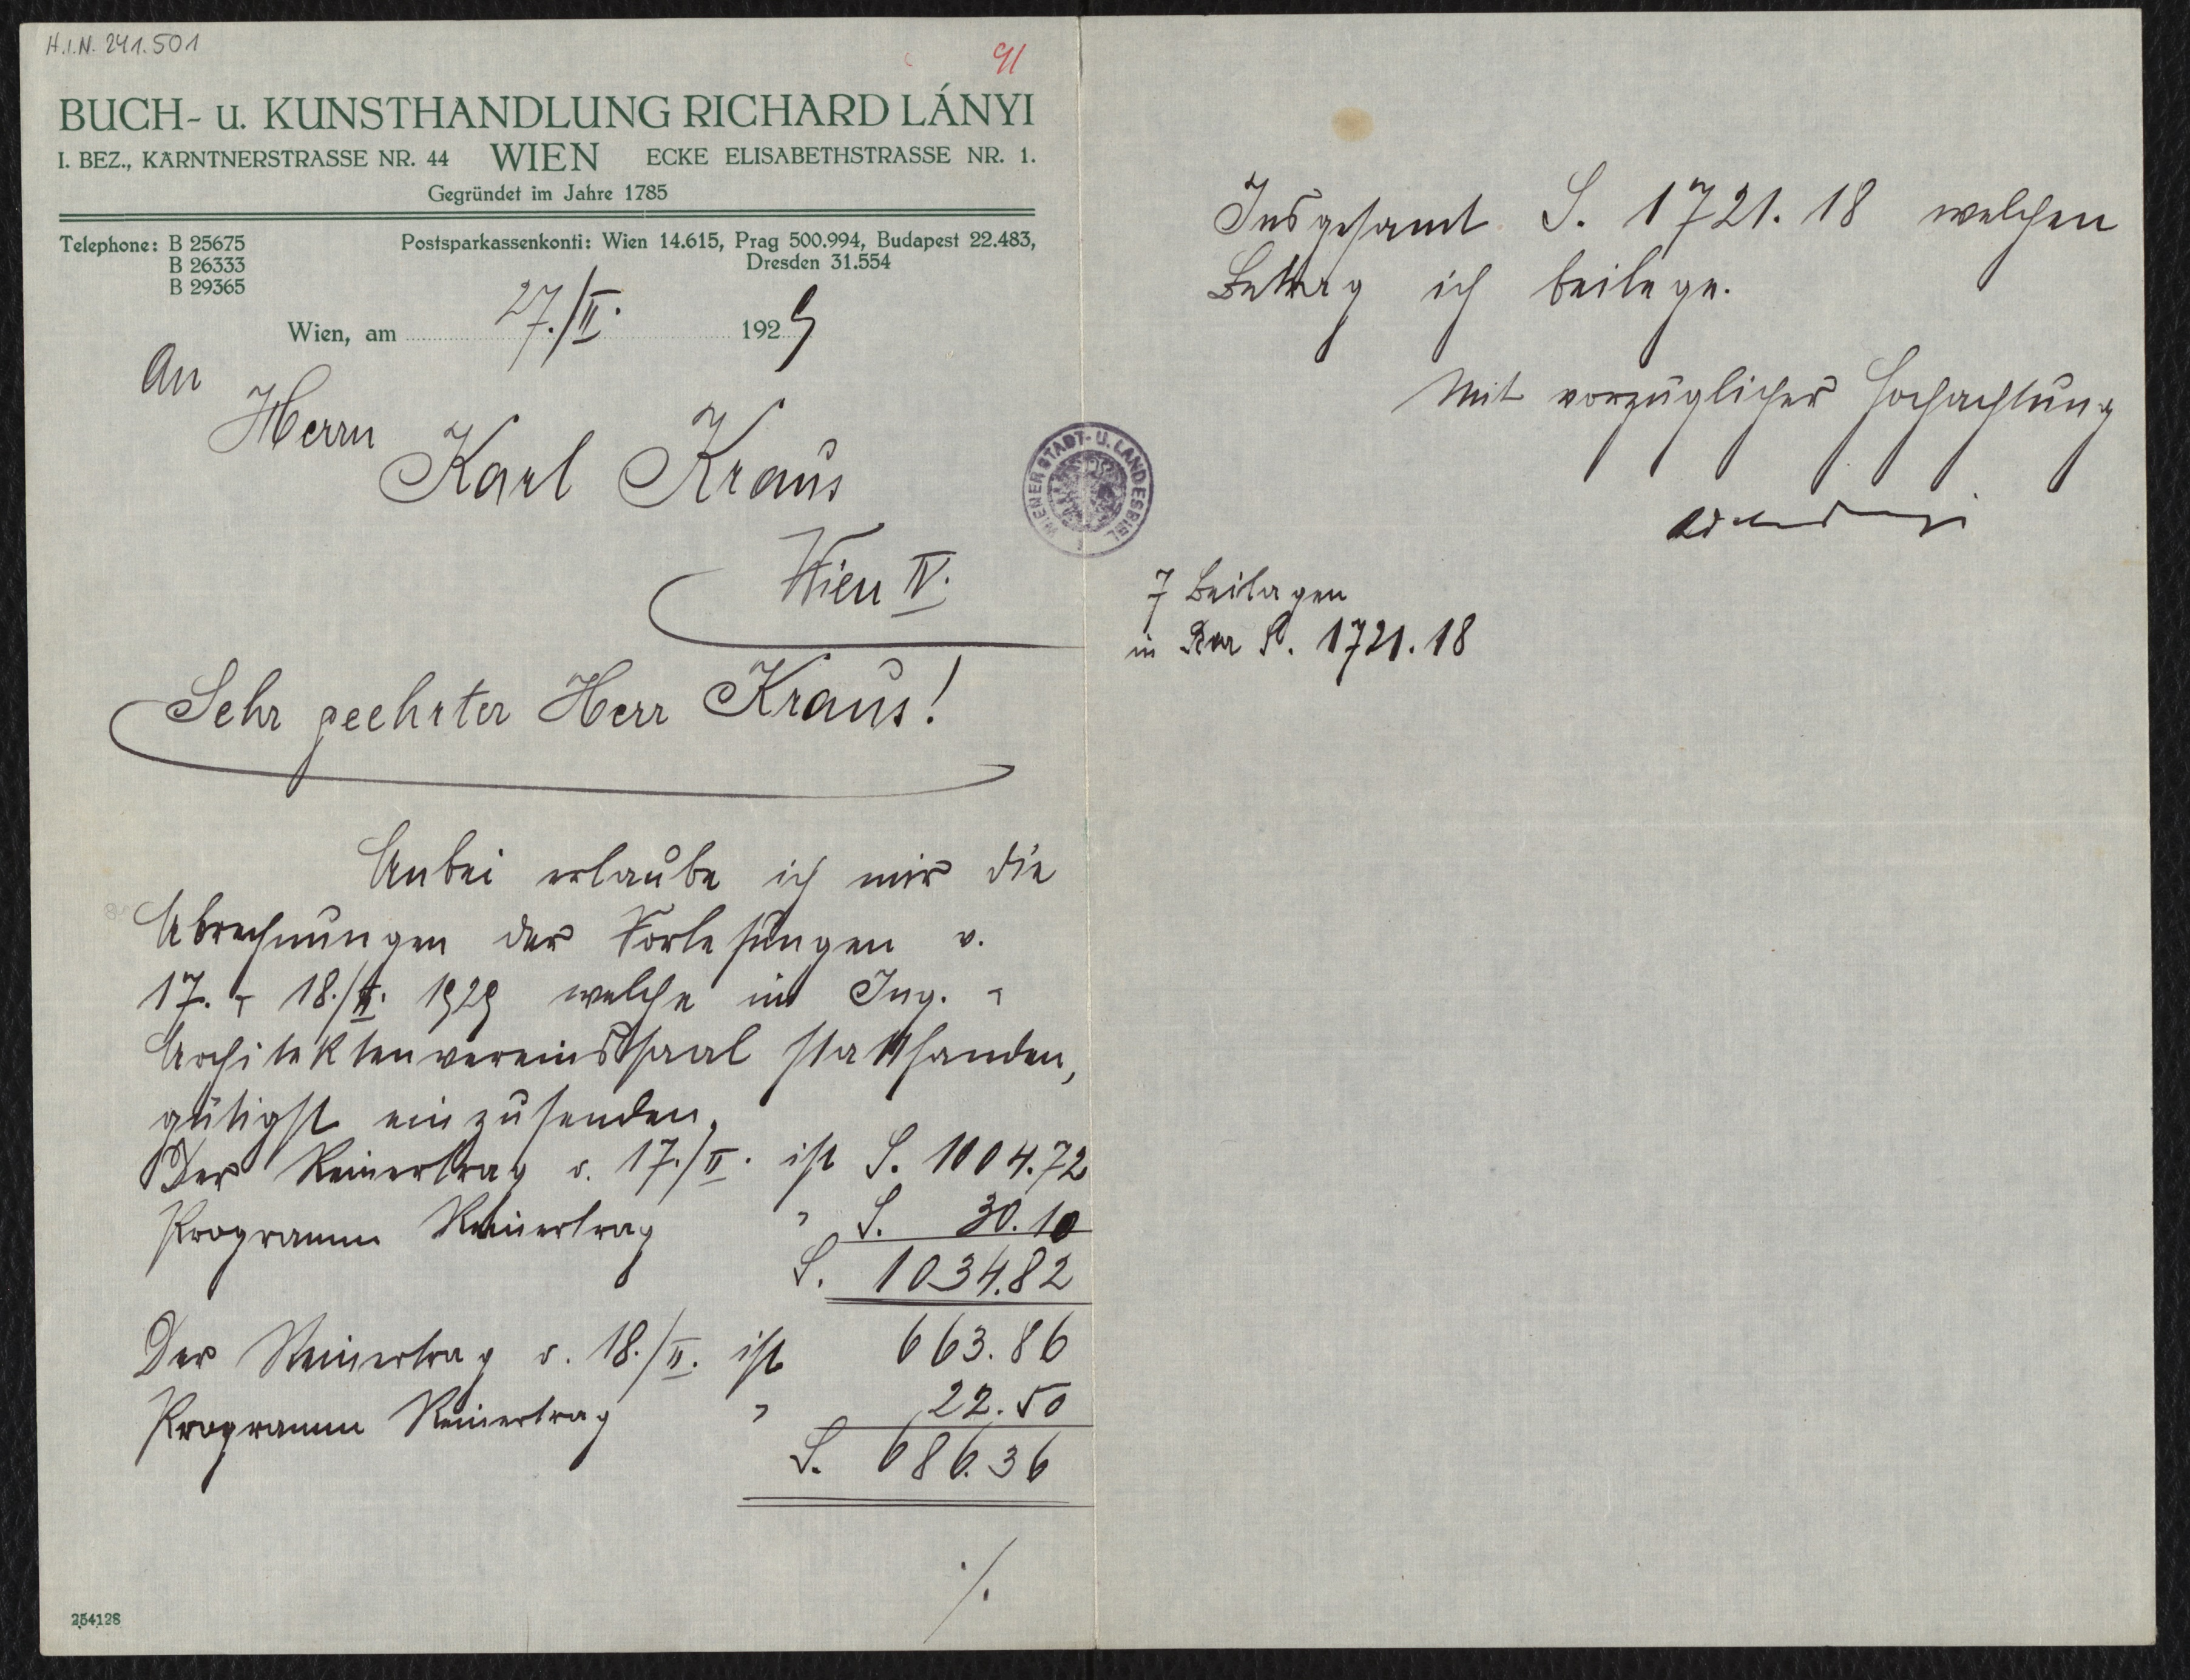 H.I.N. 241.501
91
BUCH- u. KUNSTHANDLUNG RICHARD LÁNYI
I. BEZ., KÄRNTNERSTRASSE NR. 44 WIEN ECKE ELISABETHSTRASSE NR. 1.
Gegründet im Jahre 1785
Telephone: B 25675
B 26333
B 29365
Postsparkassenkonti: Wien 14.615, Prag 500.994, Budapest 22.483,
Dresden 31.554
Wien, am 27./II. 1929
An
Herrn
Karl Kraus
Wien IV.
Sehr geehrter Herr Kraus!
Anbei erlaube ich mir die
Abrechnungen der Vorlesungen v.
17. + 18./II. 1929 welche im Ing. -
Architektenvereinssaal stattfanden,
gütigst einzusenden.
Der Reinertrag v. 17./II. ist S. 1004.72
Programm Reinertrag " S. 30.10
S. 1034.82
Der Reinertrag v. 18./II. ist 663.86
Programm Reinertrag " 22.50
S. 686.36
./.
254128
Insgesamt S. 1721.18 welchen
Betrag ich beilege.
Mit vorzüglicher Hochachtung
7 Beilagen
in Bar S. 1721.18
WIENER STADT- U. LANDESBIBL.